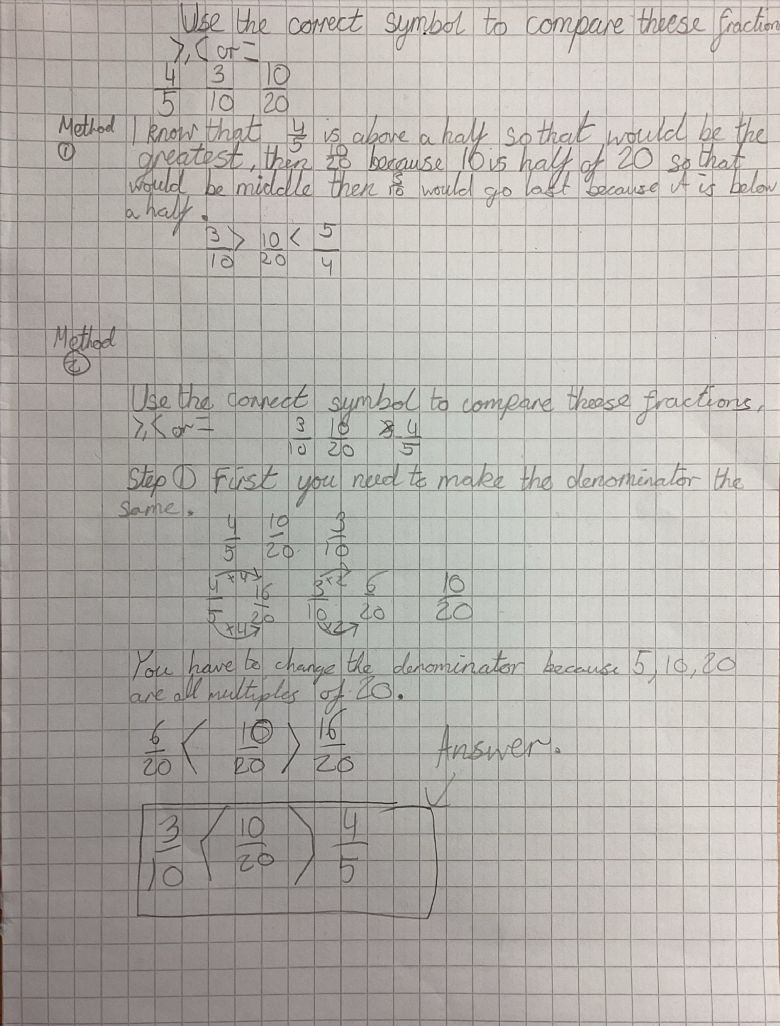 Use the correct symbol to compare theese fraction
>, < or =
4/5 3/10 10/20
Method ① I know that 4/5 is above a half so that would be the
greatest, then 10/20 because 10 is half of 20 so that
would be middle then 3/10 would go last because it is below
a half.
3/10 > 10/20 < 5/4
Method ②
Use the correct symbol to compare theese fractions,
>, < or =
3/10 10/20 4/5
Step ① First you need to make the denominator the
same.
4/5 10/20 3/10
4/5 ×4 16/20 ×4 3/10 ×2 6/20 ×2 10/20
You have to change the denominator because 5, 10, 20
are all multiples of 20.
6/20 < 10/20 > 16/20 Answer.
3/10 < 10/20 > 4/5